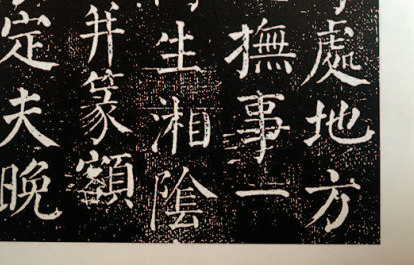 處地方
撫事一
生湘陰
并篆額
定夫晚